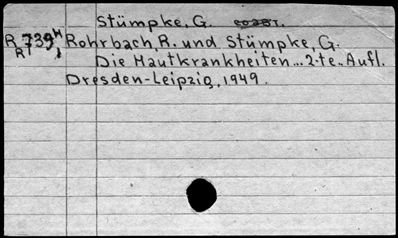 Stümpke, G. соавт.
R 739 H Rohrbach, R. und Stümpke, G.
R 1 Die Hautkrankheiten... 2-te.. Aufl.
Dresden-Leipzig, 1949.